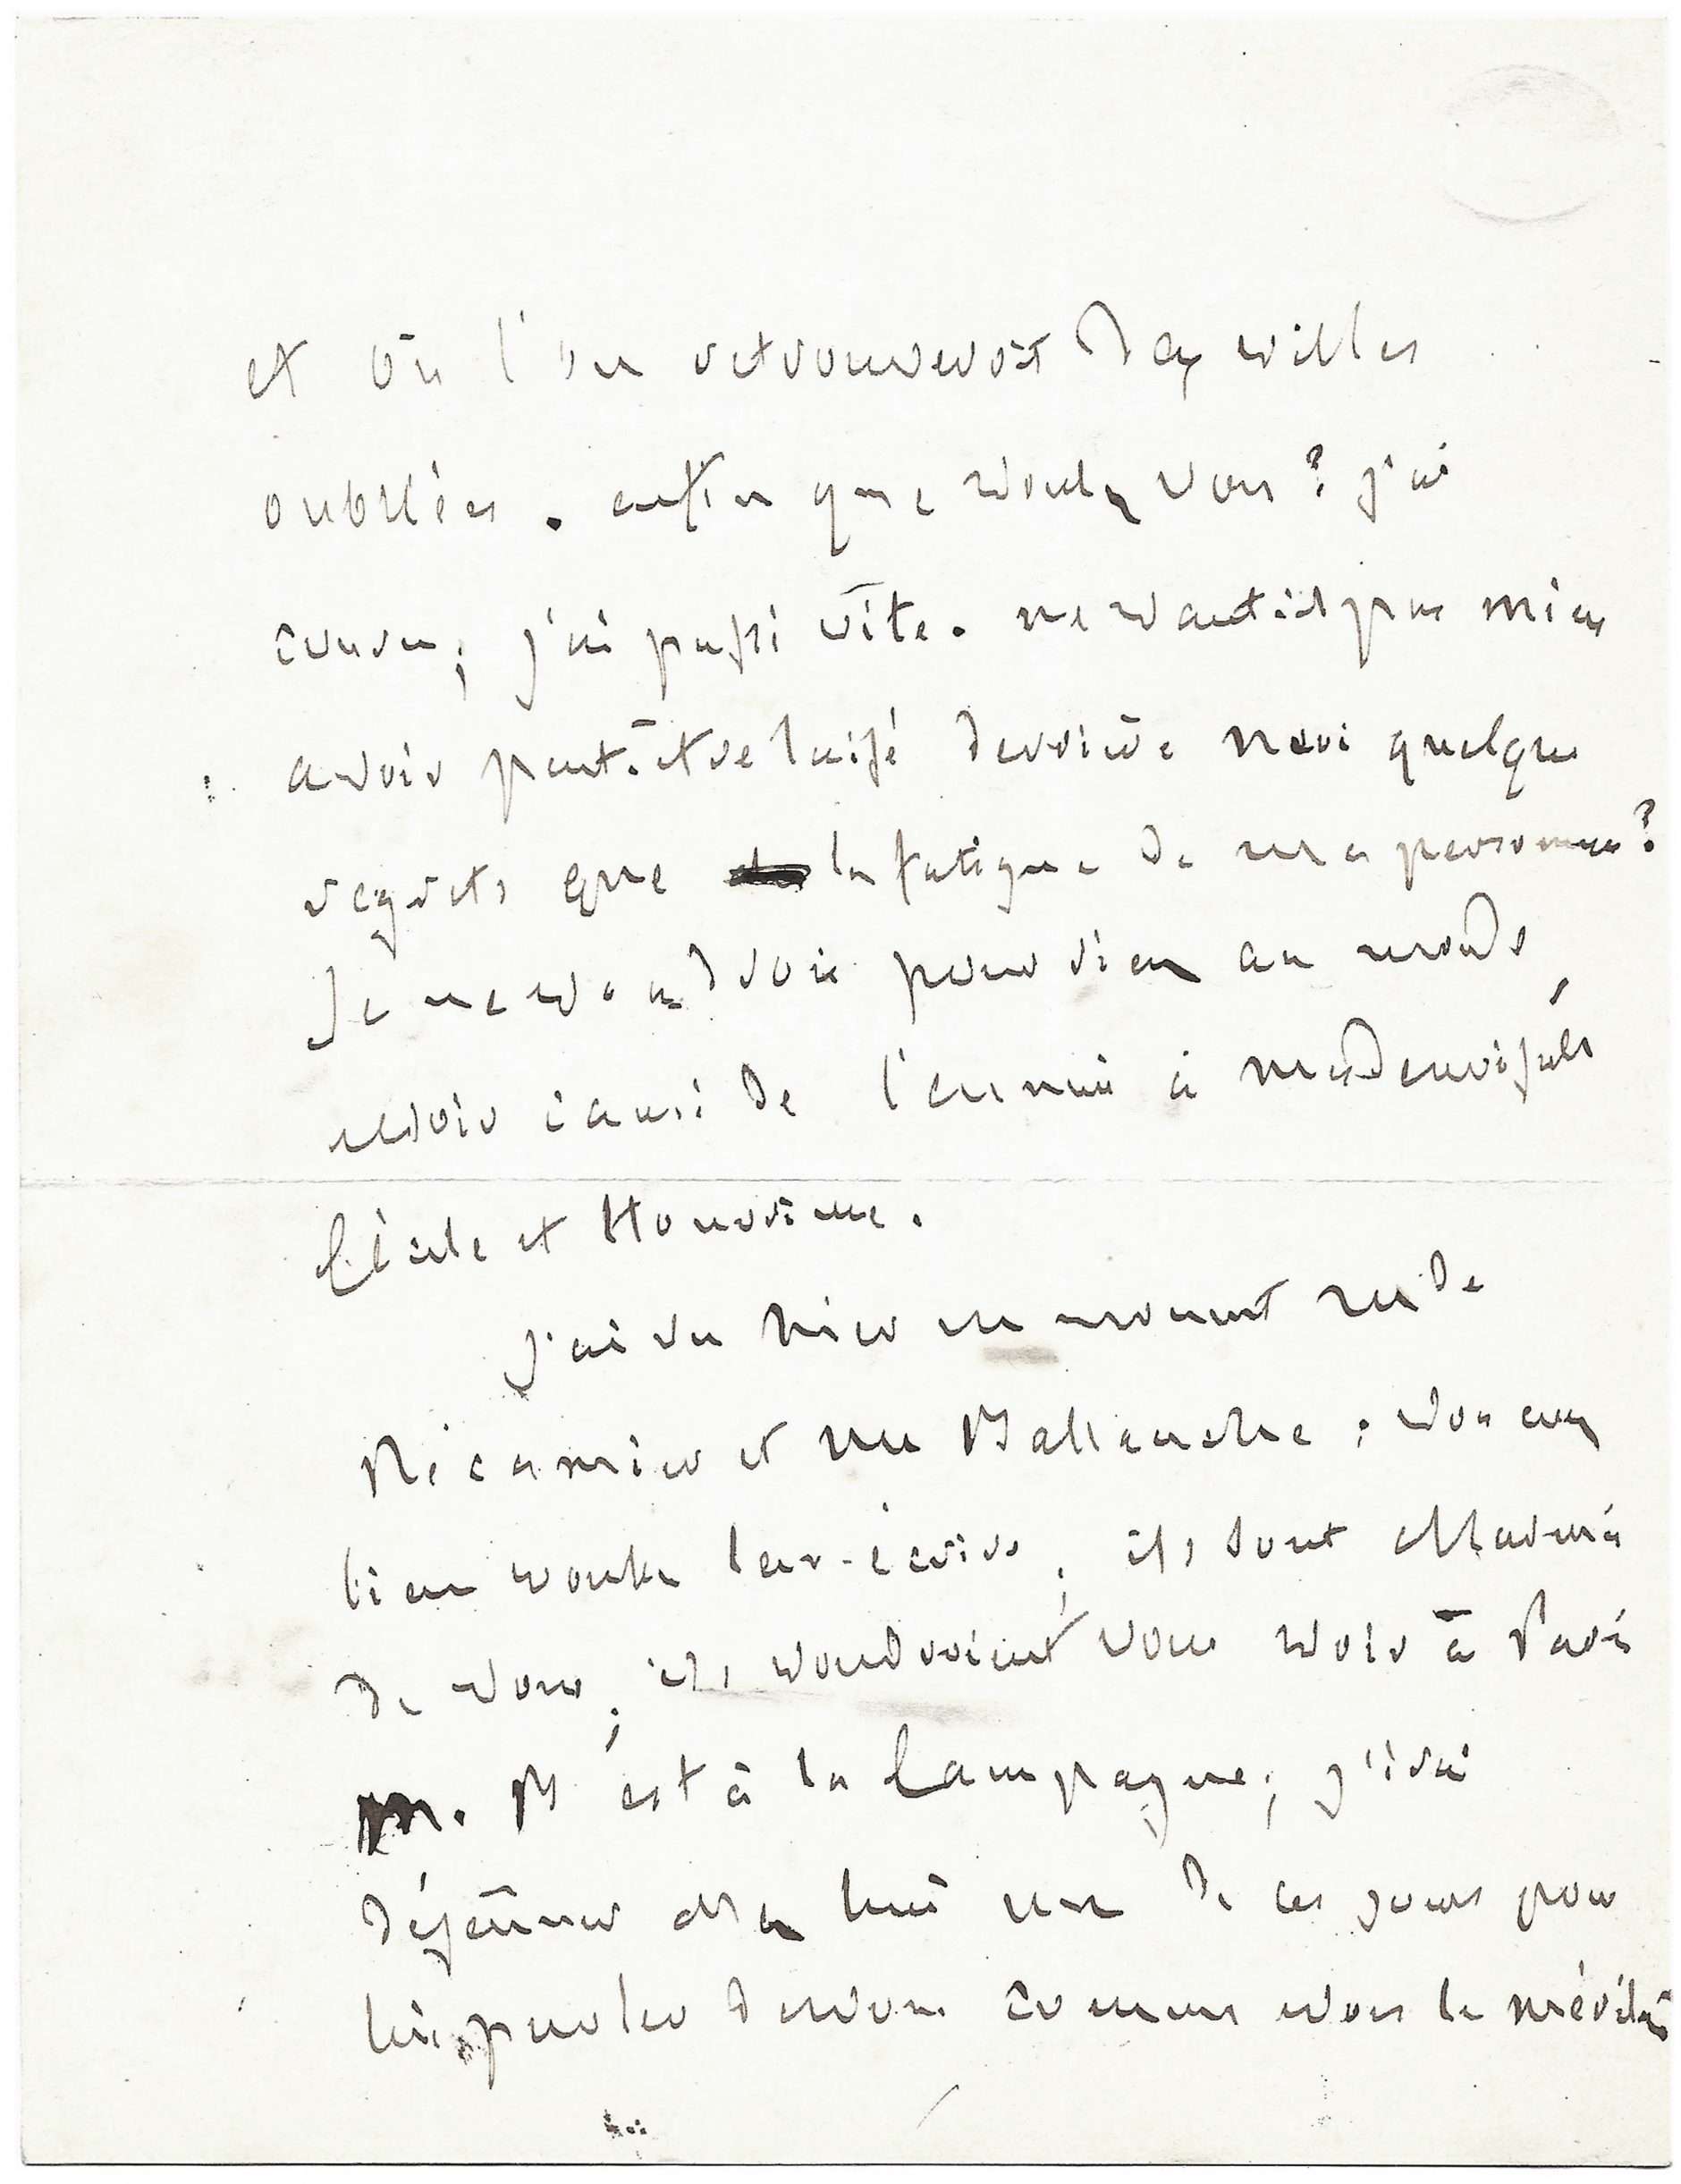 et où l'on retrouveroit des villes
oubliées. enfin que voulez vous? j'ai
couru; j'ai passé vîte. ne vaut-il pas mieux
avoir peut-être laissé derrière moi quelques
regrets que la fatigue de ma personne?
Je ne voudrois pour rien au monde
avoir causé de l'ennui à mesdemoiselles
Cécile et Honorine.
J'ai vu hier un moment Mde
Récamier et Mr Ballanche; vous avez
bien voulu leur écrire; ils sont charmés
de vous; ils voudroient vous voir à Paris
M. B est à la Campagne; j'irai
déjeûner chez lui un de ces jours pour
lui parler de vous comme vous le mérités